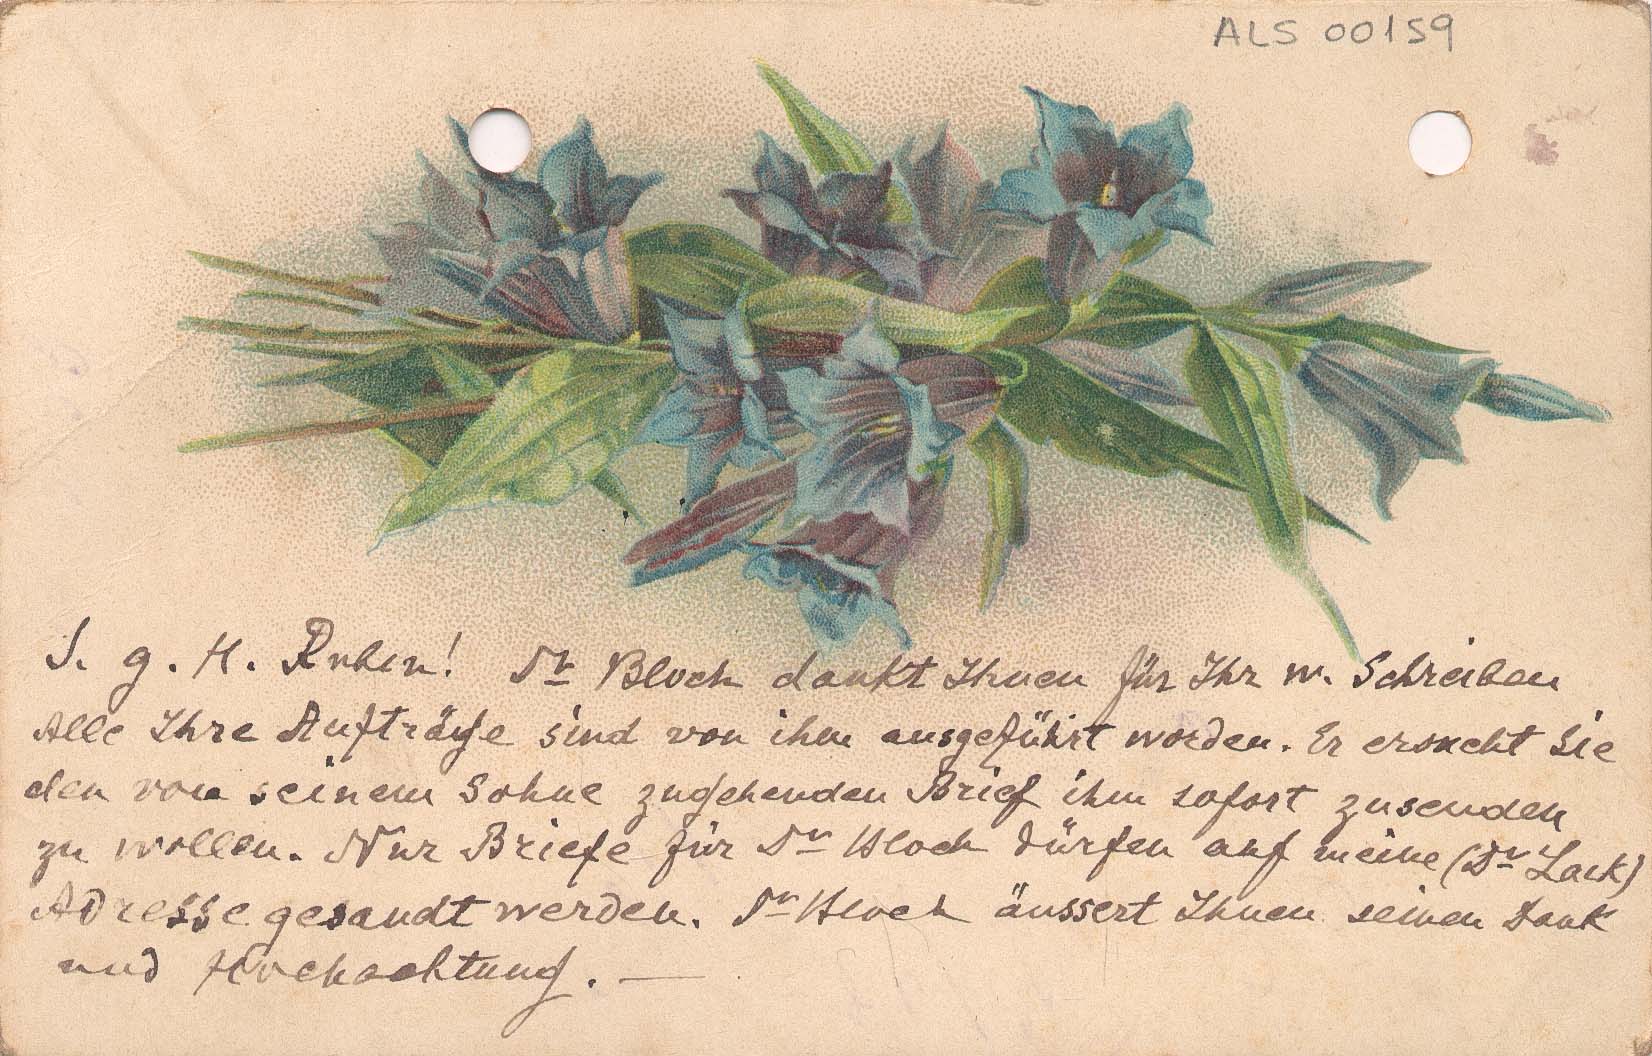 ALS 00159
S. g. H. Ruben! Dr Bloch dankt Ihnen für Ihr w. Schreiben
Alle Ihre Aufträge sind von ihm ausgeführt worden. Er ersucht Sie
den von seinem Sohne zugehenden Brief ihm sofort zusenden
zu wollen. Nur Briefe für Dr Bloch dürfen auf meine (Dr Lack)
Adresse gesandt werden. Dr Bloch äussert Ihnen seinen Dank
und Hochachtung. —